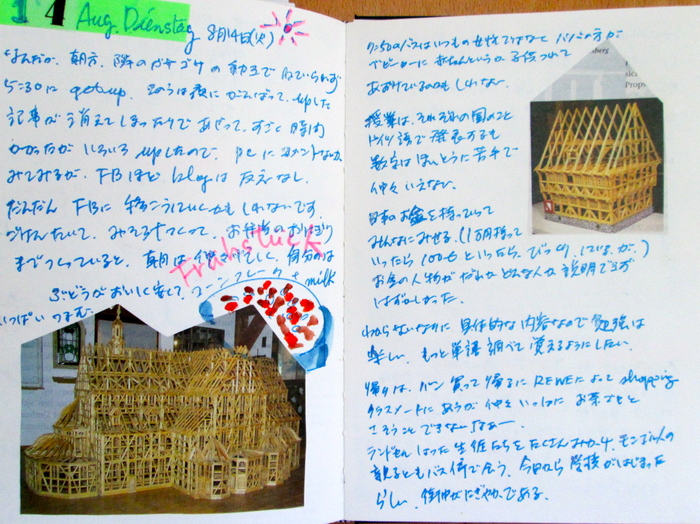 14 Aug. Dienstag 8月14日(火)
なんだか、朝方、隣のガサゴソの動きで ねていられず
5:30に get up.
記事が消えてしまったりであせって、すごく時間
かかったが いろいろ upしたので、
みてみるが、FBほど blogは 反応なし.
だんだん FBに 移こうしていくかもしれないです.
ごはんたいて、 お弁当のおにぎり
までつくっていると、
Frühstück
ぶどうがおいしく安くて、コーンフレーク + milk
いっぱい
7:50のバスはいつもの女性ではなく
ベビーカーに 赤ちゃんというか子供つれて
あずけているのかもしれない.
berg
sic
Props
授業は、それぞれの国のこと
ドイツ語で 発表するも
数字は ほんとうに 苦手で
仲々 いえない.
日本のお金を持っていって
みんなにみせる.(1万円持って
いったら 100€といったら、びっくりしていたが.)
お金の人物がだれか どんな人か 説明できず
はずかしかった.
わからないなりに 具体的な 内容なので 勉強は
楽しい. もっと単語 調べて 覚えるようにしたい.
帰りは、パン 買って帰るに REWEによって shopping
クラスメートにあうが 仲々 いっしょに お茶など
さそうこと できないなあー.
ランドセル しょった 生徒たちを たくさんみかけ、モンゴル人の
親子ともバス停で会う. 今日から 学校がはじまった
らしい. 街中がにぎやかである.